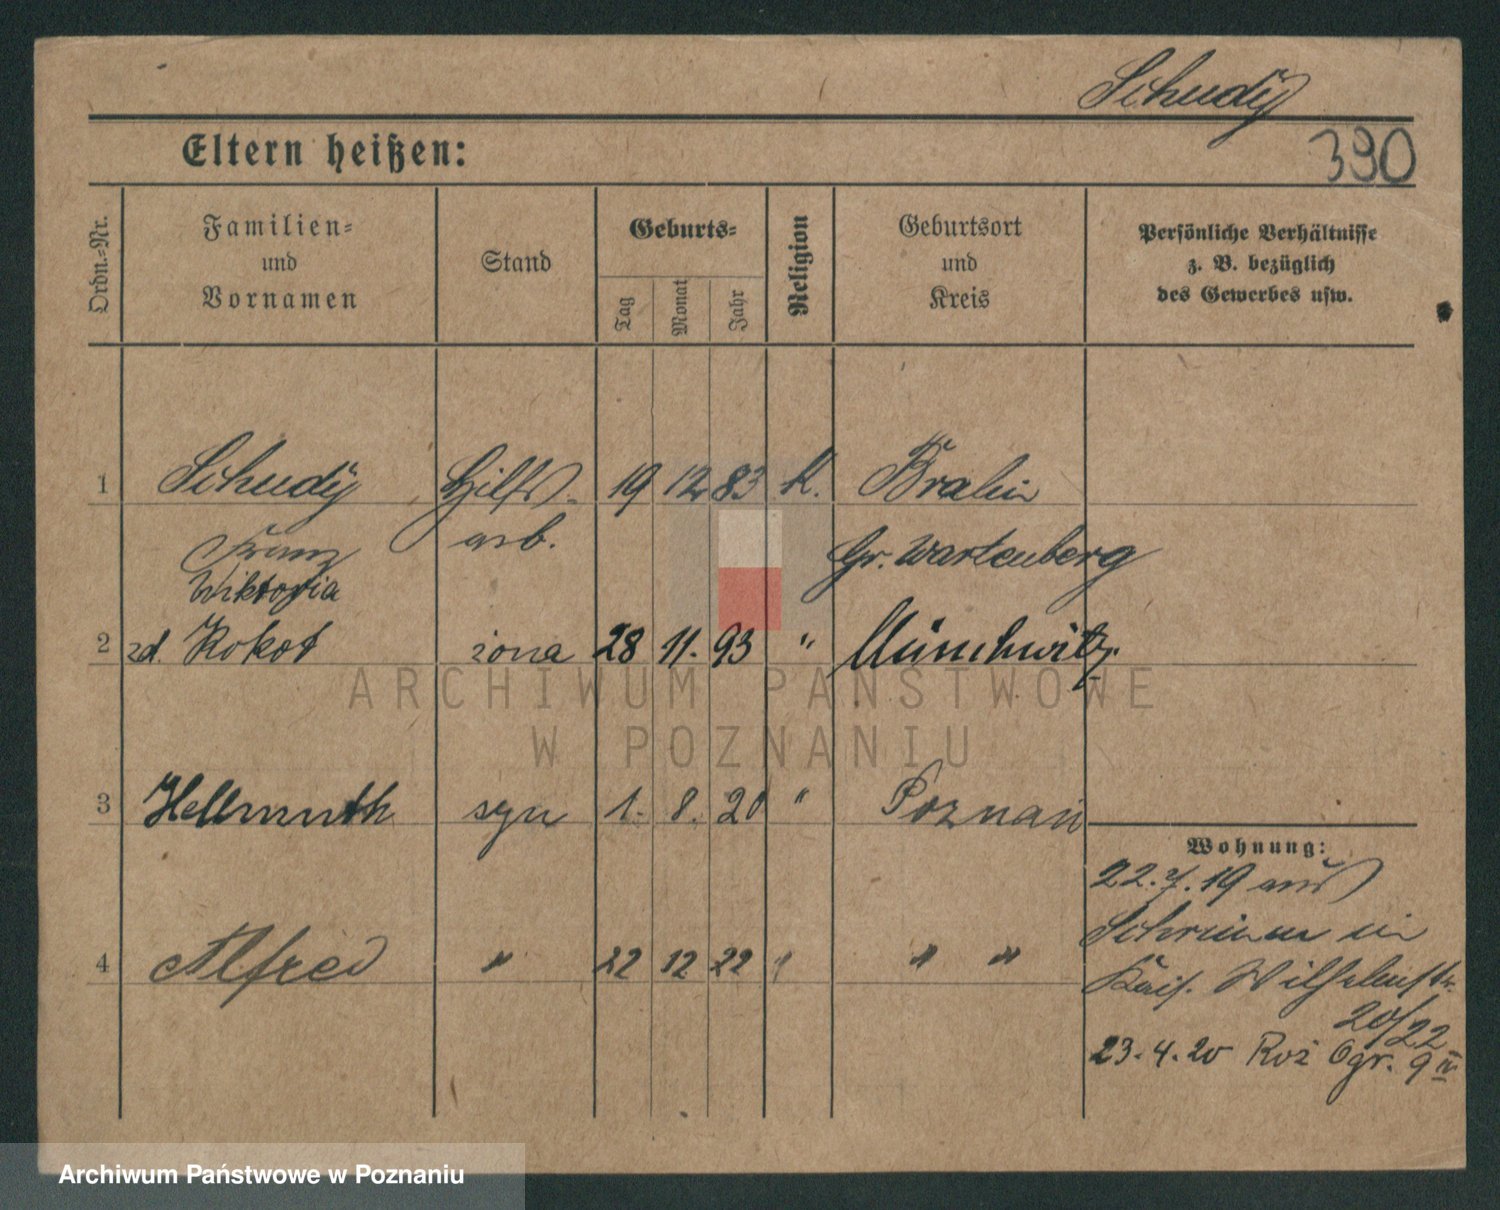 Schudy
390
Eltern heißen:
Ordn.-Nr.
Familien-
und
Vornamen
Stand
Geburts-
Tag
Monat
Jahr
Religion
Geburtsort
und
Kreis
Persönliche Verhältnisse
z. B. bezüglich
des Gewerbes usw.
1 Schudy Hilfs- 19 12 83 k. Bralin
Franz arb. Gr. Wartenberg
Wiktoria
2 zd. Kokot żona 28 11. 93 " Münchwitz
ARCHIWUM PAŃSTWOWE
W POZNANIU
3 Hellmuth syn 1. 8. 20 " Poznań
Wohnung:
22.7.19 aus
Schrimm in
4 Alfred " 22 12 22 " " "
Kais. Wilhelmstr.
20/22
23.4.20 Roż Ogr. 9 IV
Archiwum Państwowe w Poznaniu